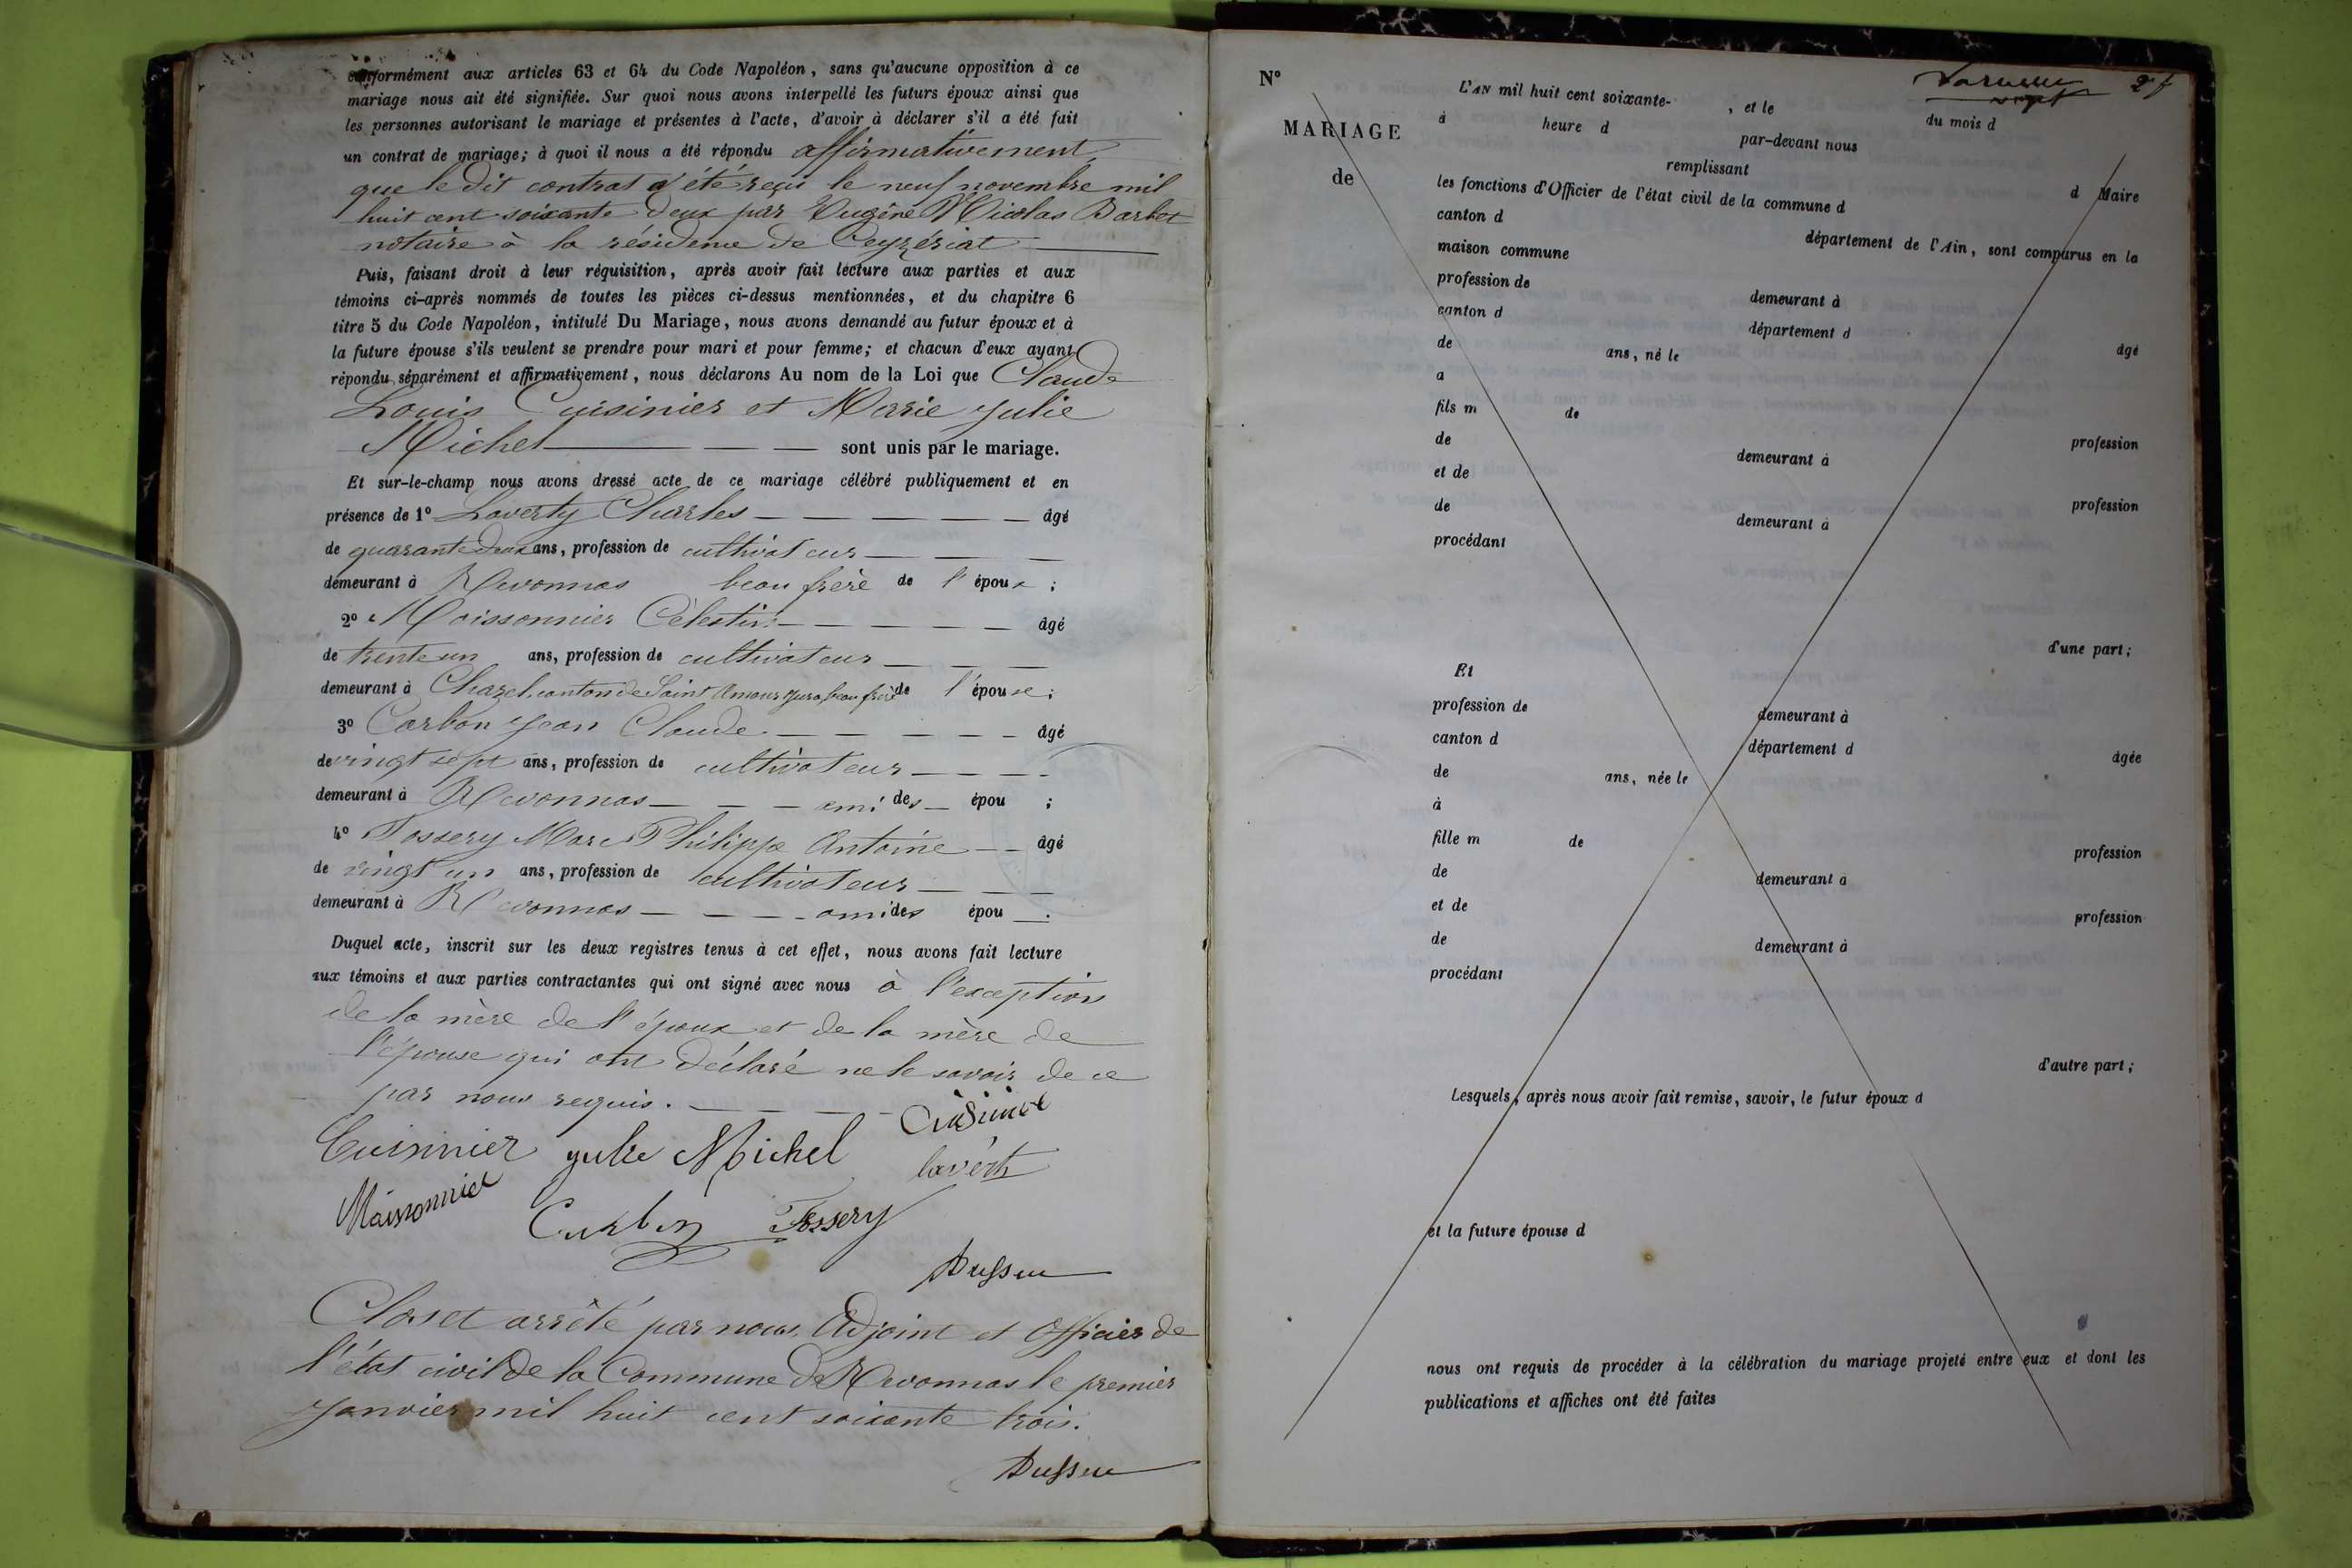 conformément aux articles 63 et 64 du Code Napoléon, sans qu'aucune opposition à ce
mariage nous ait été signifiée. Sur quoi nous avons interpellé les futurs époux ainsi que
les personnes autorisant le mariage et présentes à l'acte, d'avoir à déclarer s'il a été fait
un contrat de mariage; à quoi il nous a été répondu affirmativement,
que le dit contrat a été reçu le neuf novembre mil
huit cent soixante deux par Eugène Nicolas Barbet
notaire à la résidence de Ceyzériat
Puis, faisant droit à leur réquisition, après avoir fait lecture aux parties et aux
témoins ci-après nommés de toutes les pièces ci-dessus mentionnées, et du chapitre 6
titre 5 du Code Napoléon, intitulé Du Mariage, nous avons demandé au futur époux et à
la future épouse s'ils veulent se prendre pour mari et pour femme; et chacun d'eux ayant
répondu séparément et affirmativement, nous déclarons Au nom de la Loi que Claude
Louis Cuisinier et Marie Julie
Michel — — — sont unis par le mariage.
Et sur-le-champ nous avons dressé acte de ce mariage célébré publiquement et en
présence de 1° Laverty Charles — — — — — âgé
de quarante deux ans, profession de cultivateur — — —
demeurant à Revonnas beau frère de l'époux;
2° Moissonnier Célestin — — — — — âgé
de trente un ans, profession de cultivateur — — —
demeurant à canton de Saint Amour Jura beau frère de l'épouse;
3° Carbon Jean Claude — — — — — âgé
de vingt sept ans, profession de cultivateur — — — —
demeurant à Revonnas — — — ami des — épou ;
4° Fossery Marc Philippe Antoine — — âgé
de vingt un ans, profession de cultivateur — — —
demeurant à Revonnas — — — — ami des épou —.
Duquel acte, inscrit sur les deux registres tenus à cet effet, nous avons fait lecture
aux témoins et aux parties contractantes qui ont signé avec nous à l'exception
de la mère de l'époux et de la mère de
l'épouse qui ont déclaré ne le savoir de ce
par nous requis. — — — —
Cuisinier
Cuisinier julie Michel
Moissonnier Carbon Fossery
Clos et arrêté par nous, Adjoint et Officier de
l'état civil de la Commune de Revonnas le premier
Janvier mil huit cent soixante trois.
N°
MARIAGE
de
L'AN mil huit cent soixante- , et le
sept
du mois d
à heure d par-devant nous
remplissant
d Maire
les fonctions d'Officier de l'état civil de la commune d
canton d département de l'Ain, sont comparus en la
maison commune
profession de demeurant à
canton d département d
âgé
de ans, né le
a
fils m de
profession
de demeurant à
et de
profession
de demeurant à
procédant
d'une part;
Et
profession de demeurant à
canton d département d
âgée
de ans, née le
à
fille m de
profession
de demeurant à
et de
profession
de demeurant à
procédant
d'autre part;
Lesquels, après nous avoir fait remise, savoir, le futur époux d
et la future épouse d
nous ont requis de procéder à la célébration du mariage projeté entre eux et dont les
publications et affiches ont été faites